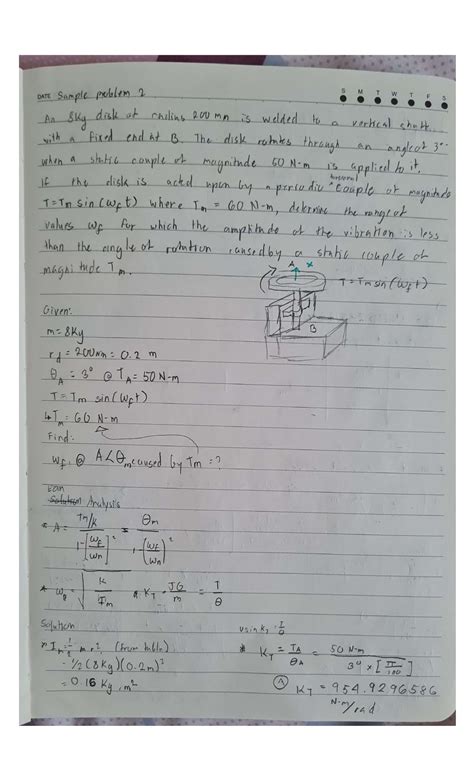 DATE Sample problem 2
S M T W T F S
An 8kg disk of radius 200 mm is welded to a vertical shaft
with a fixed end at B. The disk rotates through an angle of 3°
when a static couple of magnitude 50 N-m is applied to it.
If the disk is acted upon by a periodic torsional couple of magnitude
T = Tm sin(ωft) where Tm = 60 N-m, determine the range of
values ωf for which the amplitude of the vibration is less
than the angle of rotation caused by a static couple of
magnitude Tm.
A
T = Tm sin(ωft)
B
Given:
m = 8kg
rd = 200mm = 0.2 m
θA = 3° @ TA = 50 N-m
T = Tm sin(ωft)
↳ Tm = 60 N-m
Find:
ωf @ A < θm caused by Tm = ?
Eqn Analysis
* A = Tm/k / 1-[ωf/ωn]² = θm / 1-(ωf/ωn)²
* = √ k/Im * KT = JG/m = T/θ
Solution
* Im = 1/2 m r², (from table)
= 1/2 (8kg)(0.2m)²
= 0.16 kg.m²
using KT = T/θ
* KT = TA/θA = 50 N-m / 3° x [π/180]
(A) KT = 954.9296586
N-m/rad